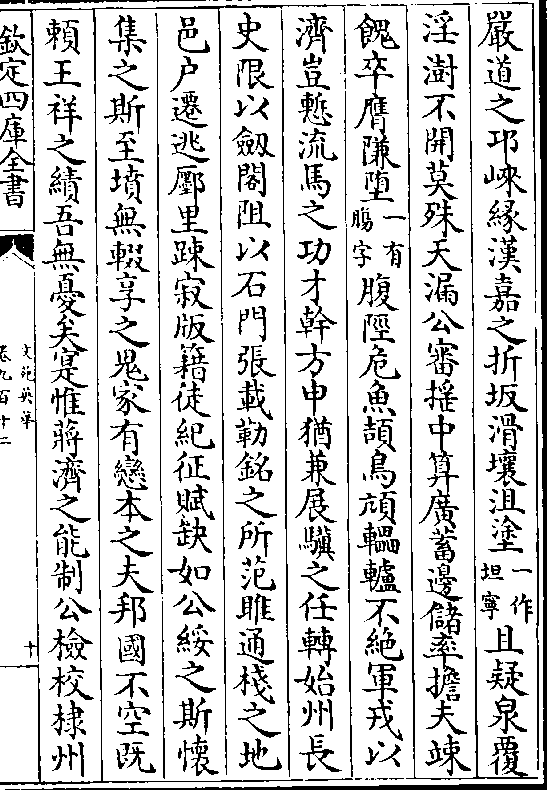 嚴道之邛崍緣漢嘉之折坂滑壤沮塗一作坦寧且疑泉覆
淫澍不開莫殊天漏公審揺中算廣蓄邊儲率擔夫竦
餽卒膺隒堕一有膓字腹陘危魚頡鳥頏轀轤不絶軍戎以
濟豈慙流馬之功才幹方申猶兼展驥之任轉始州長
史限以劔閣阻以石門張載勒銘之所范雎通棧之地
邑户遷逃鄽里踈寂版籍徒紀征賦缺如公綏之斯懷
集之斯至墳無輟享之鬼家有戀本之夫邦國不空既
賴王祥之績吾無憂矣寔惟蔣濟之能制公檢校棣州
欽定四庫全書
文苑英華
卷九百十二
十